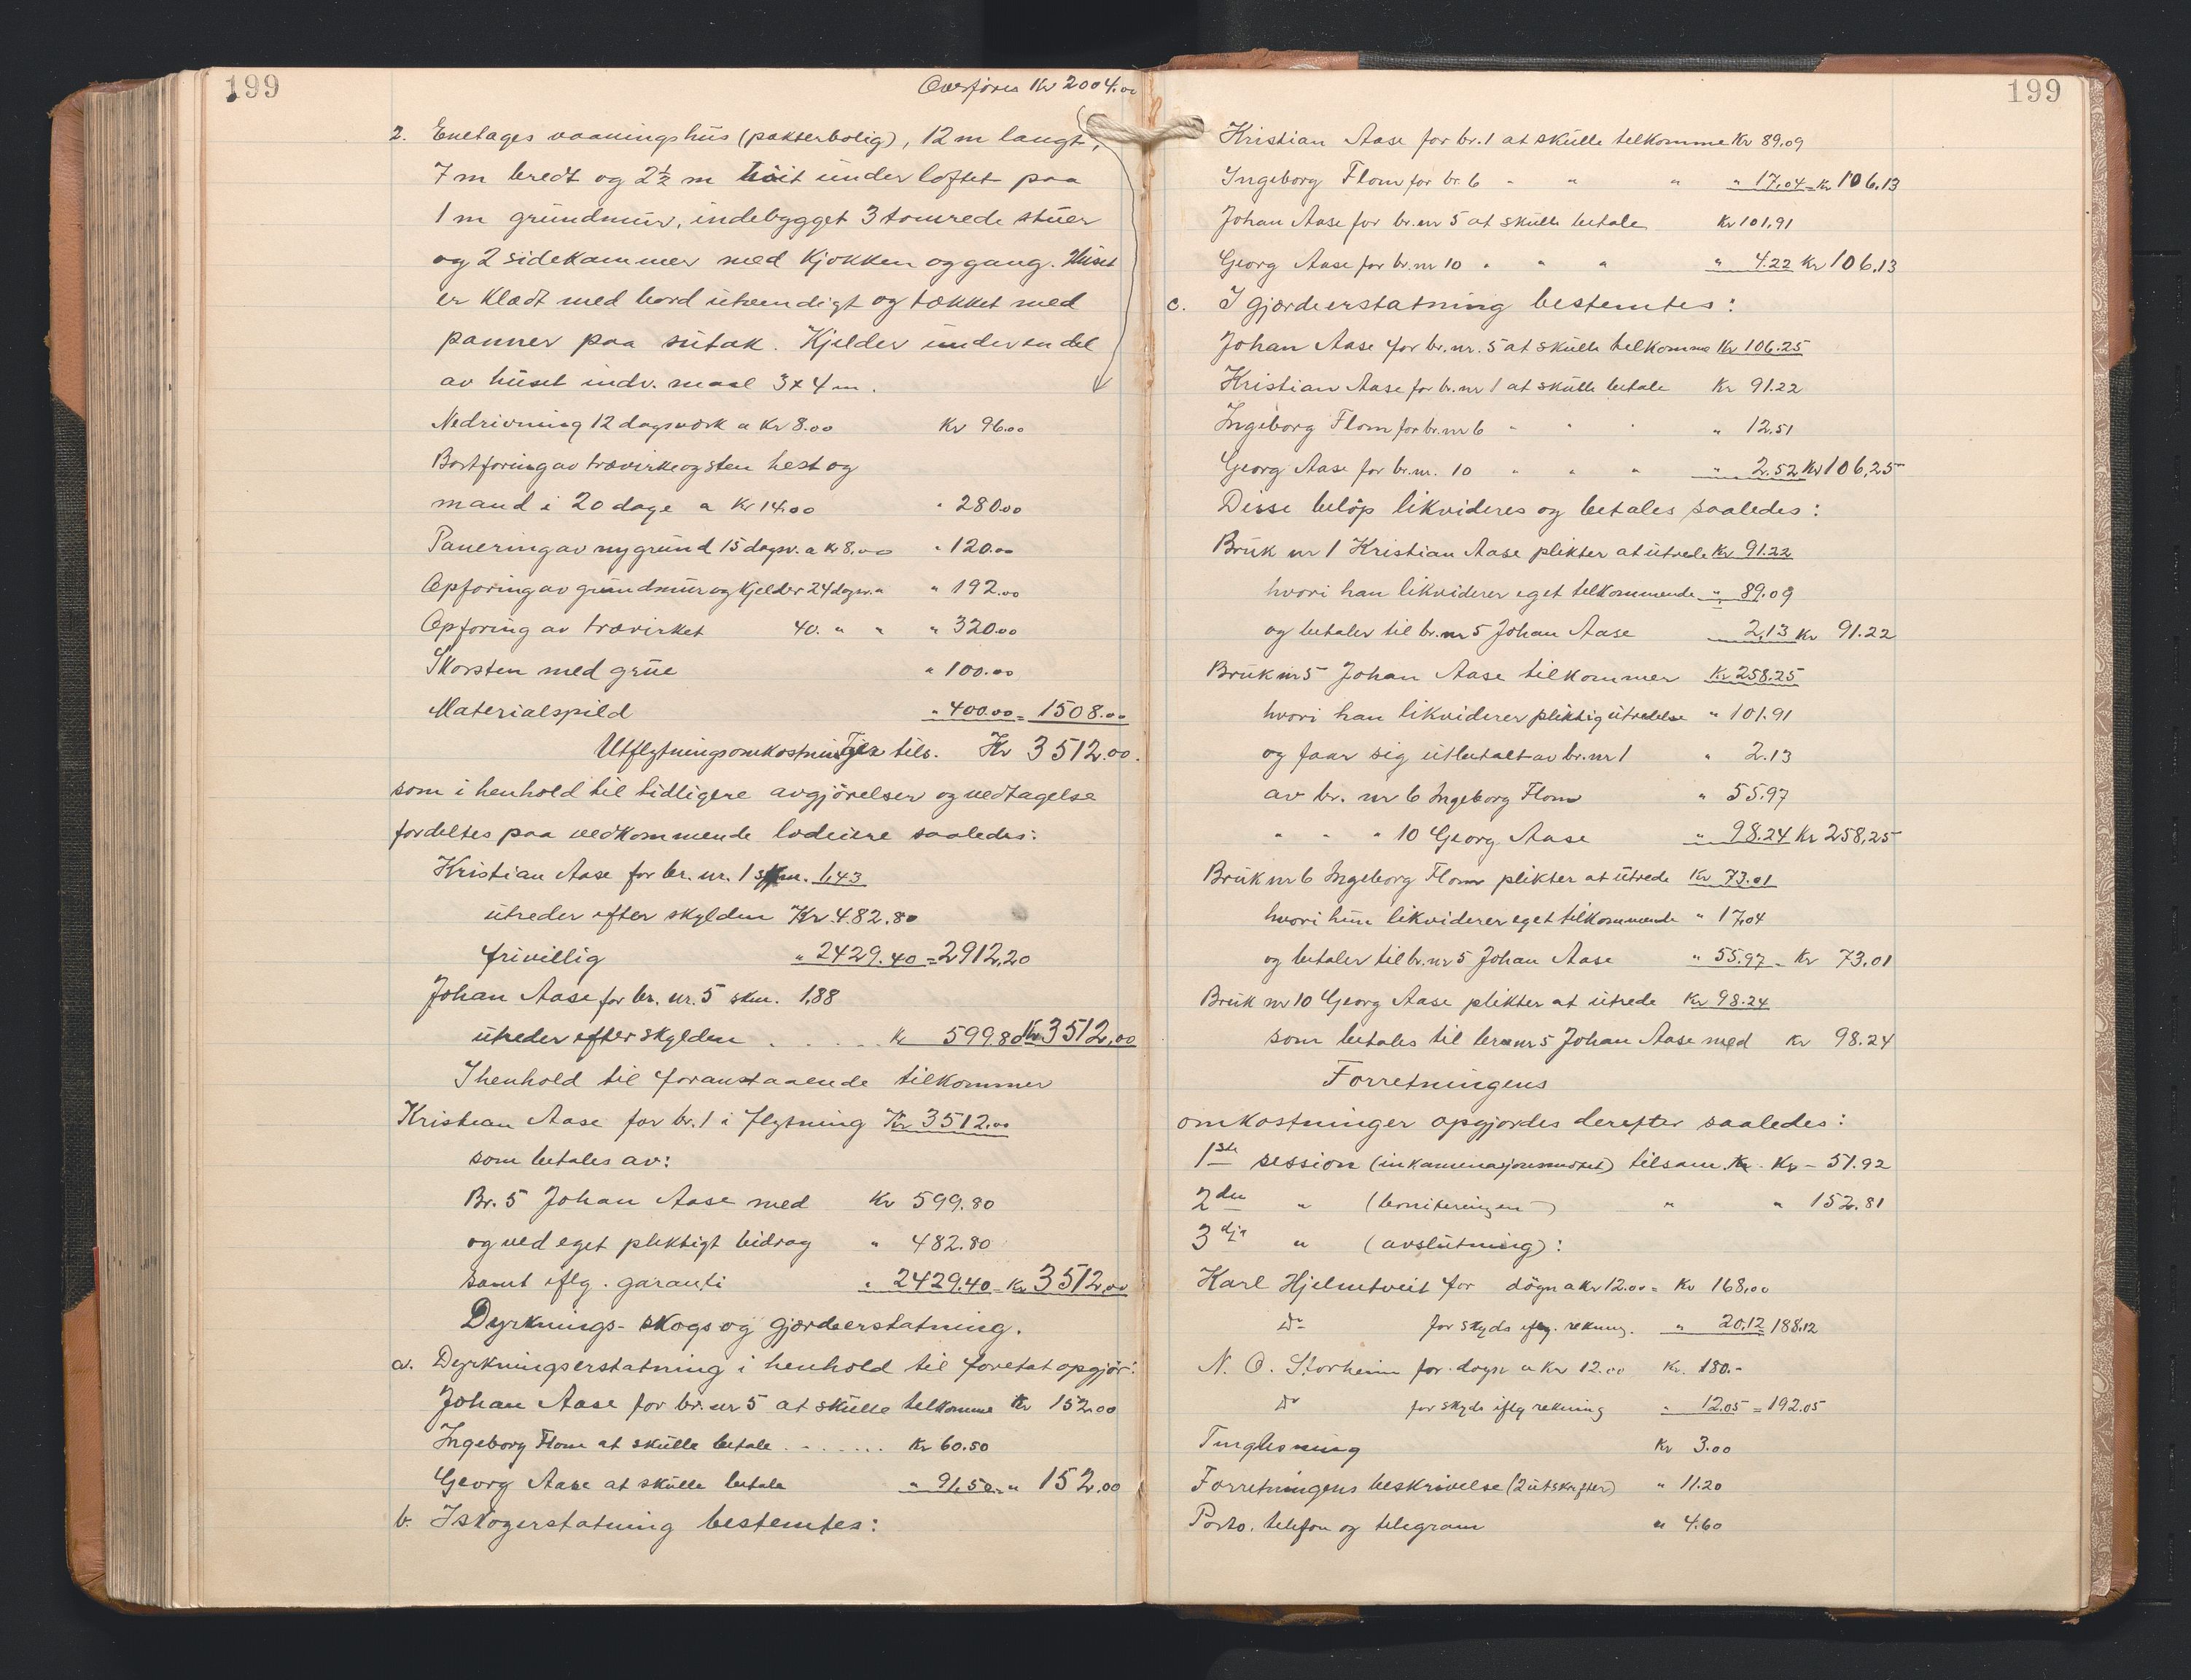 199
Overföres Kr 2004.00
2. Enetages vaaningshus (pakterbolig), 12 m langt,
7 m bredt og 2½ m höit under loftet paa
1 m grundmur, indebygget 3 tomrede stuer
og 2 sidekammer med kjökken og gang. Huset
er klædt med bord utvendigt og tækket med
panner paa sutak. Kjelder under en del
av huset indv. maal 3x4 m.
Nedrivning 12 dagsverk a Kr 8.00 Kr 96.00
Bortföring av trævirke og sten hest og
mand i 20 dage a Kr 14.00 " 280.00
Planering av ny grund 15 dagsv. a Kr 8.00 " 120.00
Opföring av grundmur og kjelder 24 dagsv. a " 192.00
Opföring av trævirket 40. " " " 320.00
Skorsten med grue " 100.00
Materialspild " 400.00 = 1508.00
Utflytningsomkostninger tils. Kr 3512.00.
som i henhold til tidligere avgjörelser og vedtagelse
fordeltes paa vedkommende lodeiere saaledes:
Kristian Aase for br. nr. 1 skm. 1,43
utreder efter skylden Kr. 482.80
frivillig " 2429.40 = 2912,20
Johan Aase for br. nr. 5 skm. 1,88
utreder efter skylden . . . . . Kr 599.80 Kr 3512,00
I henhold til foranstaaende tilkommer
Kristian Aase for br. 1 i flytning Kr 3512.00
som betales av:
Br. 5 Johan Aase med Kr 599.80
og ved eget pliktigt bidrag " 482.80
samt iflg. garanti " 2429.40 = Kr 3512,00
Dyrknings- skogs og gjærdeerstatning.
a. Dyrkningserstatning i henhold til foretat opgjör:
Johan Aase for br. nr 5 at skulle tilkomme Kr 152.00
Ingeborg Flom at skulle betale . . . . . . Kr 60.50
Georg Aase at skulle betale " 91,50 = " 152.00
b. I skogerstatning bestemtes:
199
Kristian Aase for br. 1 at skulle tilkomme Kr 89.09
Ingeborg Flom for br. 6 " " " " 17,04 = Kr 106,13
Johan Aase for br. nr 5 at skulle betale Kr 101,91
Georg Aase for br. nr 10 " " " " 4.22 Kr 106,13
c. I gjærdeerstatning bestemtes:
Johan Aase for br. nr. 5 at skulle tilkomme Kr 106.25
Kristian Aase for br. nr 1 at skulle betale Kr 91.22
Ingeborg Flom for br. nr 6 " " " " 12,51
Georg Aase for br. nr. 10 " " " " 2,52 Kr 106,25
Disse belöp likvideres og betales saaledes:
Bruk nr 1 Kristian Aase plikter at utrede Kr 91.22
hvori han likviderer eget tilkommende " 89.09
og betaler til br. nr 5 Johan Aase " 2,13 Kr 91.22
Bruk nr 5 Johan Aase tilkommer Kr 258.25
hvori han likviderer pliktig utredelse " 101.91
og faar sig utbetalt av br. nr 1 " 2.13
av br. nr 6 Ingeborg Flom " 55.97
" " " 10 Georg Aase " 98.24 Kr 258,25
Bruk nr 6 Ingeborg Flom plikter at utrede Kr 73.01
hvori hun likviderer eget tilkommende " 17,04
og betaler til br. nr 5 Johan Aase " 55.97 = Kr 73,01
Bruk nr 10 Georg Aase plikter at utrede Kr 98.24
som betales til br. nr 5 Johan Aase med Kr 98.24
Forretningens
omkostninger opgjordes derefter saaledes:
1ste session (inkaminasjonsmötet) tilsam. Kr - 51.92
2den " (boniteringen) " " 152.81
3dje " (avslutning):
Karl Hjelmtveit for dögn a kr 12.00 = Kr 168,00
Do for skyds iflg. rekning. " 20.12 188.12
N. O. Storheim for dögn a Kr 12.00 Kr. 180.-
Do for skyds iflg rekning " 12.05 = 192.05
Tinglesning Kr 3.00
Forretningens beskrivelse (2 utskrifter) " 11.20
Porto, telefon og telegram " 4.60